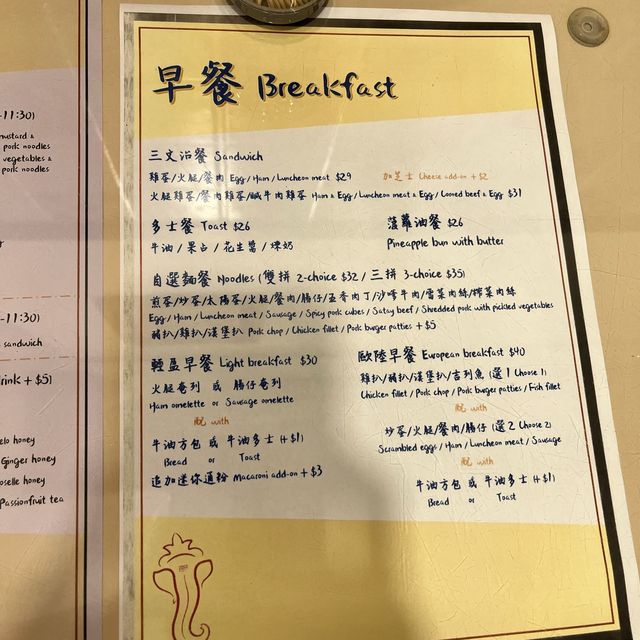 -11:30)
mustard &
pork noodles
vegetables &
pork noodles
-11:30)
sandwich
drink + $5)
honey
Ginger honey
roselle honey
Passionfruit tea
早餐 Breakfast
三文治餐 Sandwich
雞蛋/火腿/餐肉 Egg / Ham / Luncheon meat $29 加芝士 Cheese add-on + $2
火腿雞蛋/餐肉雞蛋/鹹牛肉雞蛋 Ham & Egg / Luncheon meat & Egg / Corned beef & Egg $31
多士餐 Toast $26
牛油 / 果占 / 花生醬 / 煉奶
菠蘿油餐 $26
Pineapple bun with butter
自選麵餐 Noodles (雙拼 2-choice $32 / 三拼 3-choice $35)
煎蛋/炒蛋/太陽蛋/火腿/餐肉/腸仔/五香肉丁/沙嗲牛肉/雪菜肉絲/榨菜肉絲
Egg / Ham / Luncheon meat / Sausage / Spicy pork cubes / Satay beef / Shredded pork with pickled vegetables
豬扒/雞扒/漢堡扒 Pork chop / Chicken fillet / Pork burger patties + $5
輕盈早餐 Light breakfast $30
火腿奄列 或 腸仔奄列
Ham omelette or Sausage omelette
配 with
牛油方包 或 牛油多士 (+ $1)
Bread or Toast
追加迷你通粉 Macaroni add-on + $3
歐陸早餐 European breakfast $40
雞扒/豬扒/漢堡扒/吉列魚 (選1 Choose 1)
Chicken fillet / Pork chop / Pork burger patties / Fish fillet
配 with
炒蛋/火腿/餐肉/腸仔 (選2 Choose 2)
Scrambled eggs / Ham / Luncheon meat / Sausage
配 with
牛油方包 或 牛油多士 (+ $1)
Bread or Toast